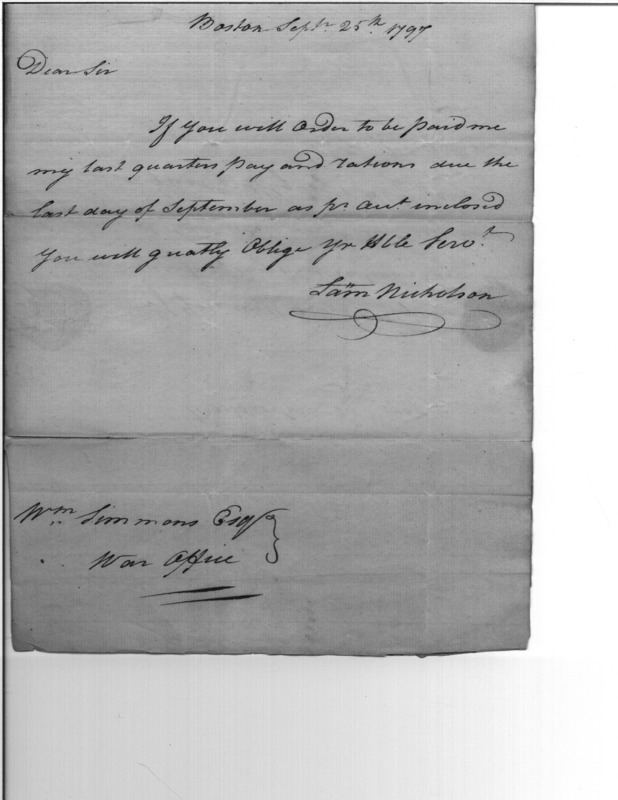 Boston Sepr. 25th. 1797
Dear Sir
If You will Order to be paid me
my last quarters pay and rations due the
last day of September as pr. Aut. inclosed
You will greatly Oblige Yr Hble Servt.
Sam Nicholson
Wm Simmons Esqr
War Office